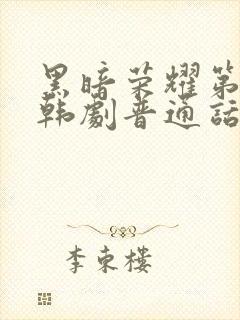 黑暗荣耀第
韩剧普通话
李东楼